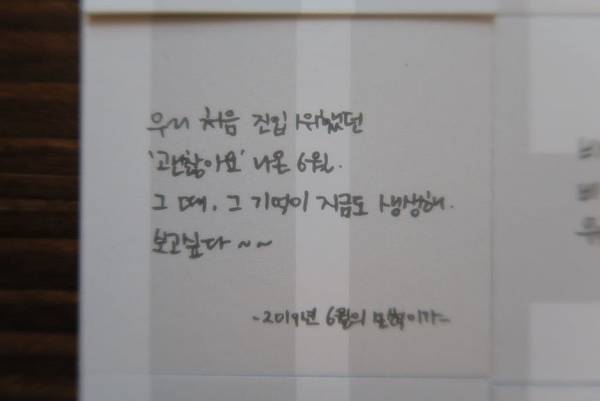 우리 처음 진입 1위했던
'괜찮아요' 나온 6월.
그 때, 그 기억이 지금도 생생해.
보고싶다 ~~
-2019년 6월의 민혁이가-